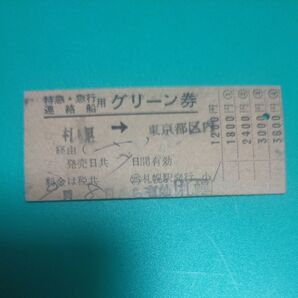 特急・急行
連絡船 用 グリーン券
札幌 → 東京都区内
経由 ( )
発売日共 日間有効
料金は税共 札幌駅発行
1200円
1800円
2400円
3000
3600円